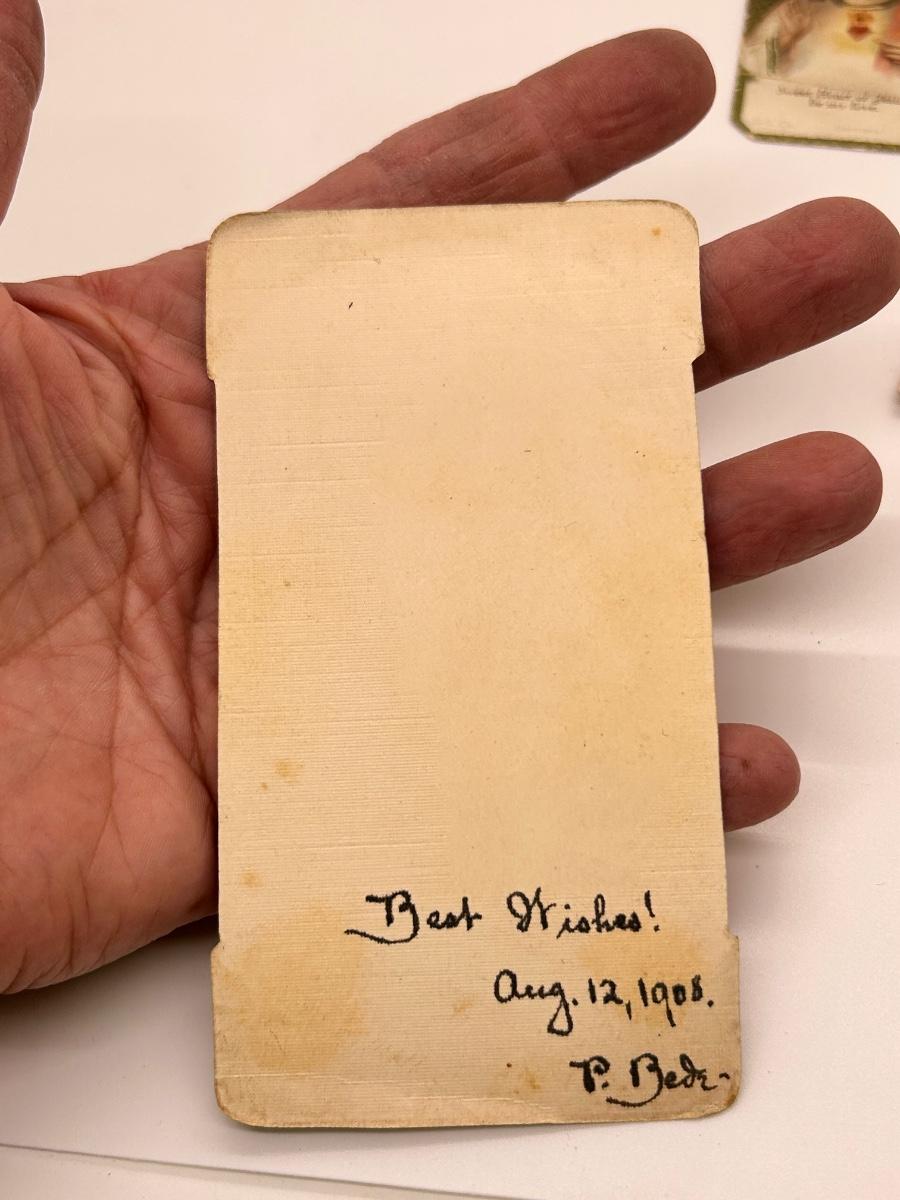 Best Wishes!
Aug. 12, 1908.
P. Bede-